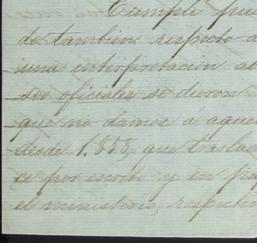 Cumple pues
do tambien respecto a
una interpretación
oficiales se dieron
que no damos á aquel
desde 1.855, que traslad
ce por escrito y en
el ministerio, respecto